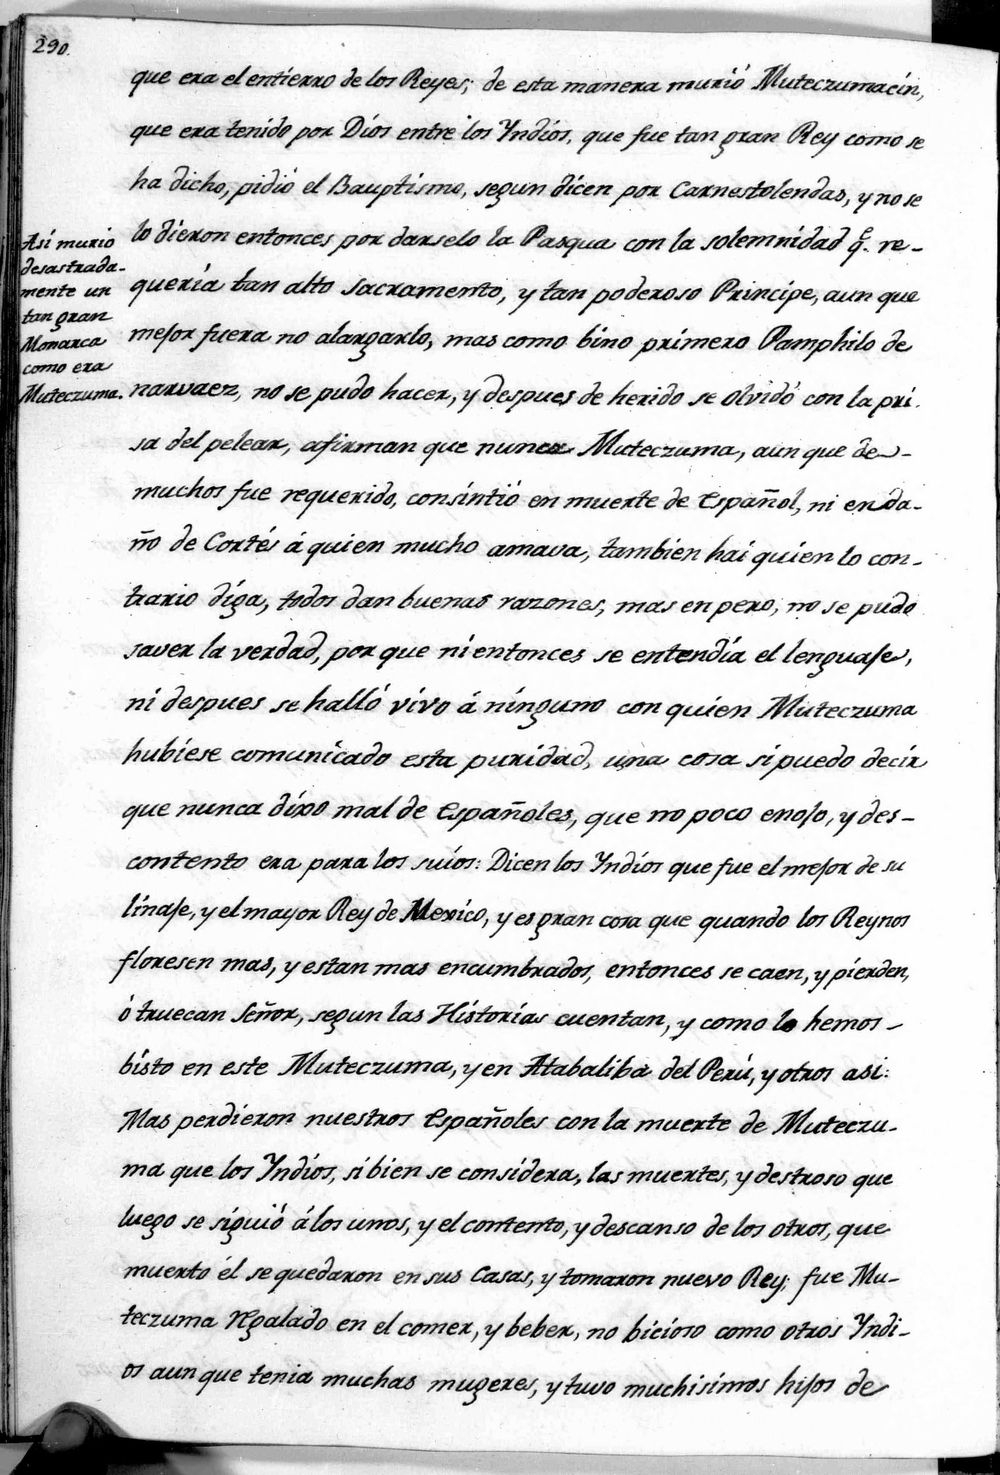 290.
que era el entierro de los Reyes; de esta manera murió Muteczumacin,
que era tenido por Dios entre los Yndios, que fue tan gran Rey como se
ha dicho, pidió el Bauptismo, segun dicen por Carnestolendas, y no se
lo dieron entonces por darselo la Pasqua con la solemnidad q.e re-
queria tan alto sacramento, y tan poderoso Principe, aun que
mejor fuera no alargarlo, mas como bino primero Pamphilo de
narvaez, no se pudo hacer, y despues de herido se olvidó con la pri-
sa del pelear, afirman que nunca Muteczuma, aun que de-
muchos fue requerido, consintió en muerte de Español, ni en da-
ño de Cortés á quien mucho amava, tambien hai quien lo con-
trario diga, todos dan buenas razones, mas en pero, no se pudo
saver la verdad, por que ni entonces se entendia el lenguaje,
ni despues se halló vivo á ninguno con quien Muteczuma
hubiese comunicado esta puridad, una cosa si puedo decir
que nunca dixo mal de Españoles, que no poco enojo, y des-
contento era para los suios: Dicen los Yndios que fue el mejor de su
linaje, y el mayor Rey de Mexico, y es gran cosa que quando los Reynos
floresen mas, y estan mas encumbrados, entonces se caen, y pierden,
ó truecan Señor, segun las Historias cuentan, y como lo hemos-
bisto en este Muteczuma, y en Atabaliba del Perú, y otros asi:
Mas perdieron nuestros Españoles con la muerte de Muteczu-
ma que los Yndios, si bien se considera, las muertes, y destroso que
luego se siguió á los unos, y el contento, y descanso de los otros, que
muerto él se quedaron en sus Casas, y tomaron nuevo Rey; fue Mu-
teczuma Regalado en el comer, y beber, no bicioso como otros Yndi-
os aun que tenia muchas mugeres, y tuvo muchisimos hijos de
Asi murio
desastrada-
mente un
tan gran
Monarca
como era
Muteczuma.